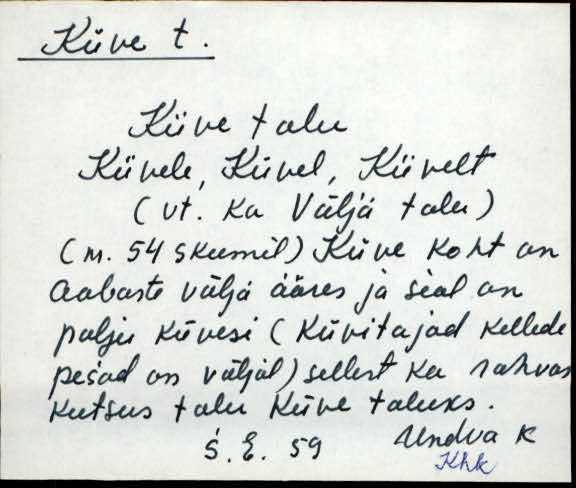 Kiive t.
Kiive talu
Kiivele, Kiivel, Kiivelt
(vt. ka Välja talu)
(m. 54 skeemil) Kiive koht on
Aabaste välja ääres ja seal on
palju kiivesi (Kiivitajad kellede
pesad on väljal) sellest ka rahvas
kutsus talu Kiive taluks.
S. E. 59 Undva k
Khk